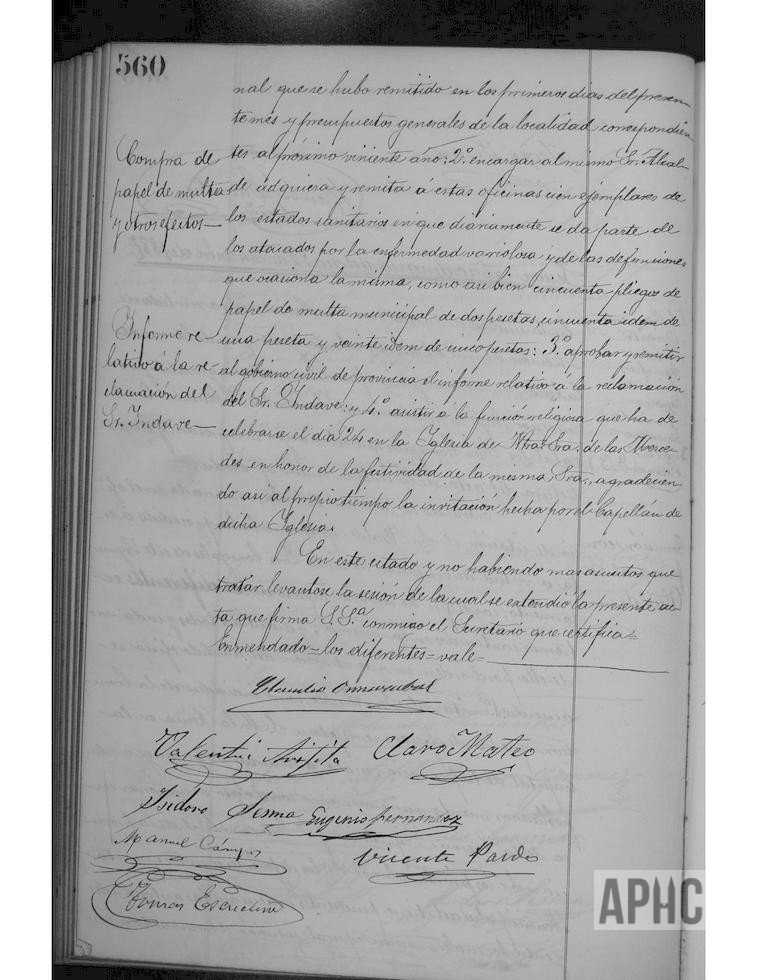 560
nal que se hubo remitido en los primeros dias del presen-
te mes y presupuestos generales de la localidad correspondien-
tes al próximo viniente año: 2º encargar al mismo Sr. Alcal-
de adquiera y remita á estas oficinas cien ejemplares de
los estados sanitarios en que diariamente se da parte de
los atacados por la enfermedad variolosa y de las defunciones
que ocasiona la misma, como asi bien cincuenta pliegos de
papel de multa municipal de dos pesetas, cincuenta idem de
una peseta y veinte idem de cinco pesetas: 3º aprobar y remitir
al gobierno civil de provincia el informe relativo á la reclamación
del Sr. Indave: y 4º asistir á la función religiosa que ha de
celebrarse el dia 24 en la Iglesia de Ntra. Sra. de las Merce-
des en honor de la festividad de la misma Sra., agradecien-
do asi al propio tiempo la invitación hecha por el Capellán de
dicha Iglesia.
En este estado y no habiendo mas asuntos que
tratar levantose la sesión de la cual se extendió la presente ac-
ta que firma S.Sª conmigo el Secretario que certifica=
Enmendado=los diferentes=vale=
Compra de
papel de multa
y otros efectos—
Informe re-
lativo á la re-
clamación del
Sr. Indave—
Claudio
Valentin Claro Mateo
Isidoro Sesma Eugenio Fernandez
Manuel Campos Vicente Pardo
Tomas Escudero
APHC